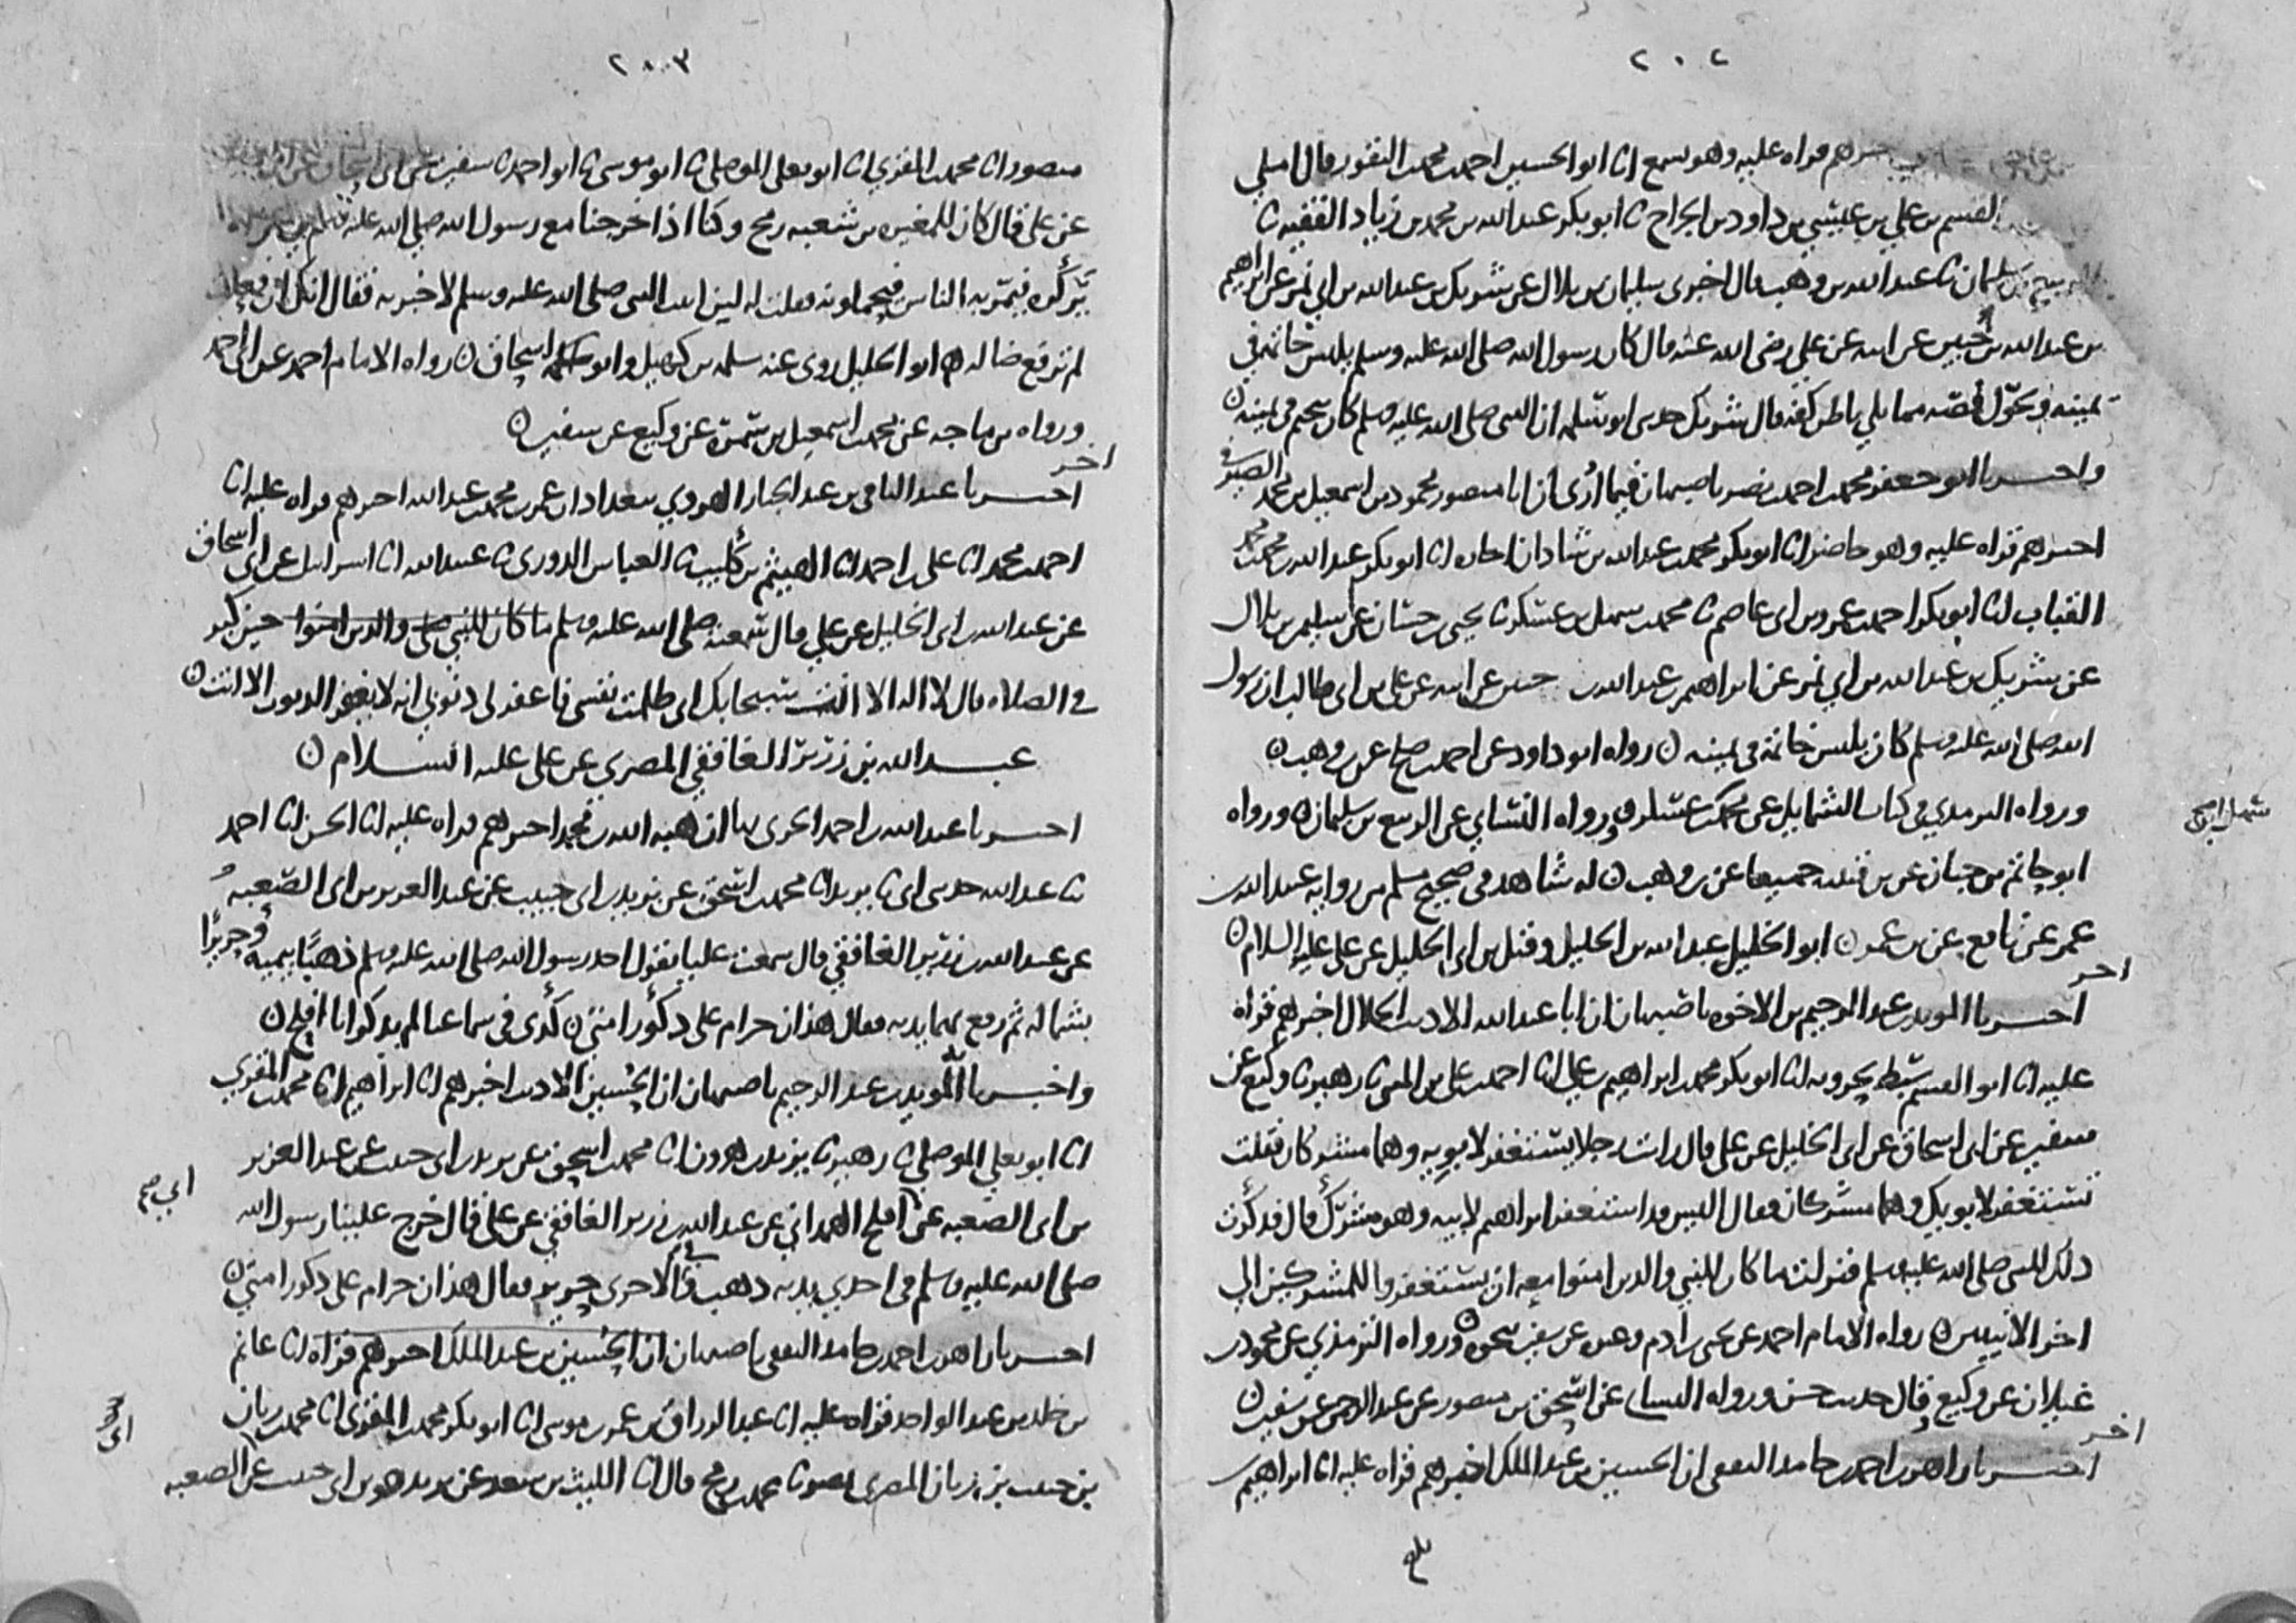 ٢٠٢
أخبرهم قراه عليه وهو يسمع انا ابو الحسين احمد بن محمد النقور قال املى
القسم بن علي بن عيسى بن داود بن الجراح نا ابو بكر عبد الله بن محمد بن زياد الفقيه نا
الربيع بن سليمان نا عبد الله بن وهب قال اخبرني سليمان بن بلال عن شريك بن عبد الله بن ابي نمر عن ابراهيم
بن عبد الله بن حنين عن ابيه عن علي رضي الله عنه قال كان رسول الله صلى الله عليه وسلم يلبس خاتمه في
يمينه ويحول فصه مما يلي باطن كفه قال شريك حدثني ابو سلمه ان النبي صلى الله عليه وسلم كان يتختم في يمينه
واخبرنا ابو جعفر محمد بن احمد بن نصر باصبهان فيما ارى ان ابا منصور محمود بن اسمعيل بن محمد الصيرفي
اخبرهم قراه عليه وهو حاضر انا ابو بكر محمد بن عبد الله بن شاذان اجازه انا ابو بكر عبد الله بن محمد بن محمد
القباب انا ابو بكر احمد بن عمرو بن ابي عاصم نا محمد بن سهل بن عسكر نا يحيى بن حسان عن سليمن بن بلال
عن شريك بن عبد الله بن ابي نمر عن ابراهيم بن عبد الله بن حنين عن ابيه عن علي بن ابي طالب ان رسول
الله صلى الله عليه وسلم كان يلبس خاتمه في يمينه رواه ابو داود عن احمد بن صالح عن بن وهب
ورواه الترمدي في كتاب الشمايل عن محمد بن عسكر ورواه النساي عن الربيع بن سليمان ورواه
ابو حاتم بن حبان عن بن قتيبه جميعا عن بن وهب له شاهد في صحيح مسلم من روايه عبيد الله بن
عمر عن نافع عن بن عمر ابو الخليل عبد الله بن الخليل وقيل بن ابي الخليل عن علي عليه السلام
اخر
اخبرنا المويد بن عبد الرحيم بن الاخوه باصبهان ان ابا عبد الله الاديب الخلال اخبرهم قراه
عليه انا ابو القسم سبط بحرويه انا ابو بكر محمد بن ابراهيم بن علي انا احمد بن علي بن المثنى نا زهير نا وكيع عن
سفين عن ابي اسحاق عن ابي الخليل عن علي قال رايت رجلا يستغفر لابويه وهما مشركان فقلت
تستغفر لابويك وهما مشركان فقال اليس قد استغفر ابراهيم لابيه وهو مشرك قال فذكرت
ذلك للنبي صلى الله عليه وسلم فنزلت ما كان للنبي والذين امنوا معه ان يستغفروا للمشركين الى
اخر الايتين رواه الامام احمد عن يحيى بن ادم وعن عن سفين نحوه ورواه الترمذي عن محمود بن
غيلان عن وكيع وقال حديث حسن ورواه النسائي عن اسحق بن منصور عن عبد الرحمن عن سفين
اخر
اخبرنا زاهر بن احمد بن حامد الثقفي ان الحسين بن عبد الملك اخبرهم قراه عليه انا ابراهيم بن
٢٠٣
منصور انا محمد بن المقري انا ابو يعلى الموصلي نا ابو موسى نا ابو احمد نا سفين عن ابي اسحاق عن ابي
عن علي قال كان للمغيره بن شعبه رمح وكنا اذا خرجنا مع رسول الله صلى الله عليه وسلم
يركزه فيمر به الناس فيحملونه فقلت له لين اتيت النبي صلى الله عليه وسلم لاخبرنه فقال انك ان فعلت
لم ترفع ضاله ابو الخليل روى عنه سلمه بن كهيل وابو اسحاق رواه الامام احمد عن ابي احمد
ورواه بن ماجه عن محمد بن اسمعيل بن سمرة عن وكيع عن سفين
اخر
اخبرنا عبد الباقي بن عبد الجبار الهروي ببغداد ان عمر بن محمد بن عبد الله اخبرهم قراه عليه انا
احمد بن محمد انا علي بن احمد انا الهيثم بن كليب نا العباس الدوري نا عبيد الله انا اسرايل عن ابي اسحاق
عن عبد الله بن ابي الخليل عن علي قال سمعته صلى الله عليه وسلم ما كان للنبي صلى والذين امنوا حين كبر
في الصلاه قال لا اله الا انت سبحانك اني ظلمت نفسي فاغفر لي ذنوبي انه لا يغفر الذنوب الا انت
عبد الله بن زرير الغافقي المصري عن علي عليه السلام
اخبرنا عبد الله بن احمد الحربي بها ان هبه الله بن محمد اخبرهم قراه عليه انا الحسن انا احمد
نا عبد الله حدثني ابي نا يزيد انا محمد بن اسحق عن يزيد بن ابي حبيب عن عبد العزيز بن ابي الصعبه
عن عبد الله بن زرير الغافقي قال سمعت عليا يقول اخذ رسول الله صلى الله عليه وسلم ذهبا بيمينه وحريرا
بشماله ثم رفع بهما يديه فقال هذان حرام على ذكور امتي كذى في سماعنا لم يذكر ابا افلح
واخبرنا المويد بن عبد الرحيم باصبهان ان الحسين الاديب اخبرهم انا ابراهيم انا محمد بن المقري
انا ابو يعلى الموصلي نا زهير نا يزيد بن هرون انا محمد بن اسحق عن يزيد بن ابي حبيب عن عبد العزيز
بن ابي الصعبه عن افلح الهمداني عن عبد الله بن زرير الغافقي عن علي قال خرج علينا رسول الله
صلى الله عليه وسلم في احدى يديه ذهب وفي الاخرى حرير فقال هذان حرام على ذكور امتي
اخبرنا زاهر بن احمد بن حامد الثقفي باصبهان ان الحسين بن عبد الملك اخبرهم قراه انا غانم
بن خلد بن عبد الواحد قراه عليه انا عبد الرزاق بن عمر بن موسى انا ابو بكر محمد بن المقري انا محمد بن زبان
بن حبيب بن زبان المصري بمصر نا محمد بن رمح قال انا الليث بن سعد عن يزيد هو بن ابي حبيب عن الصعبه